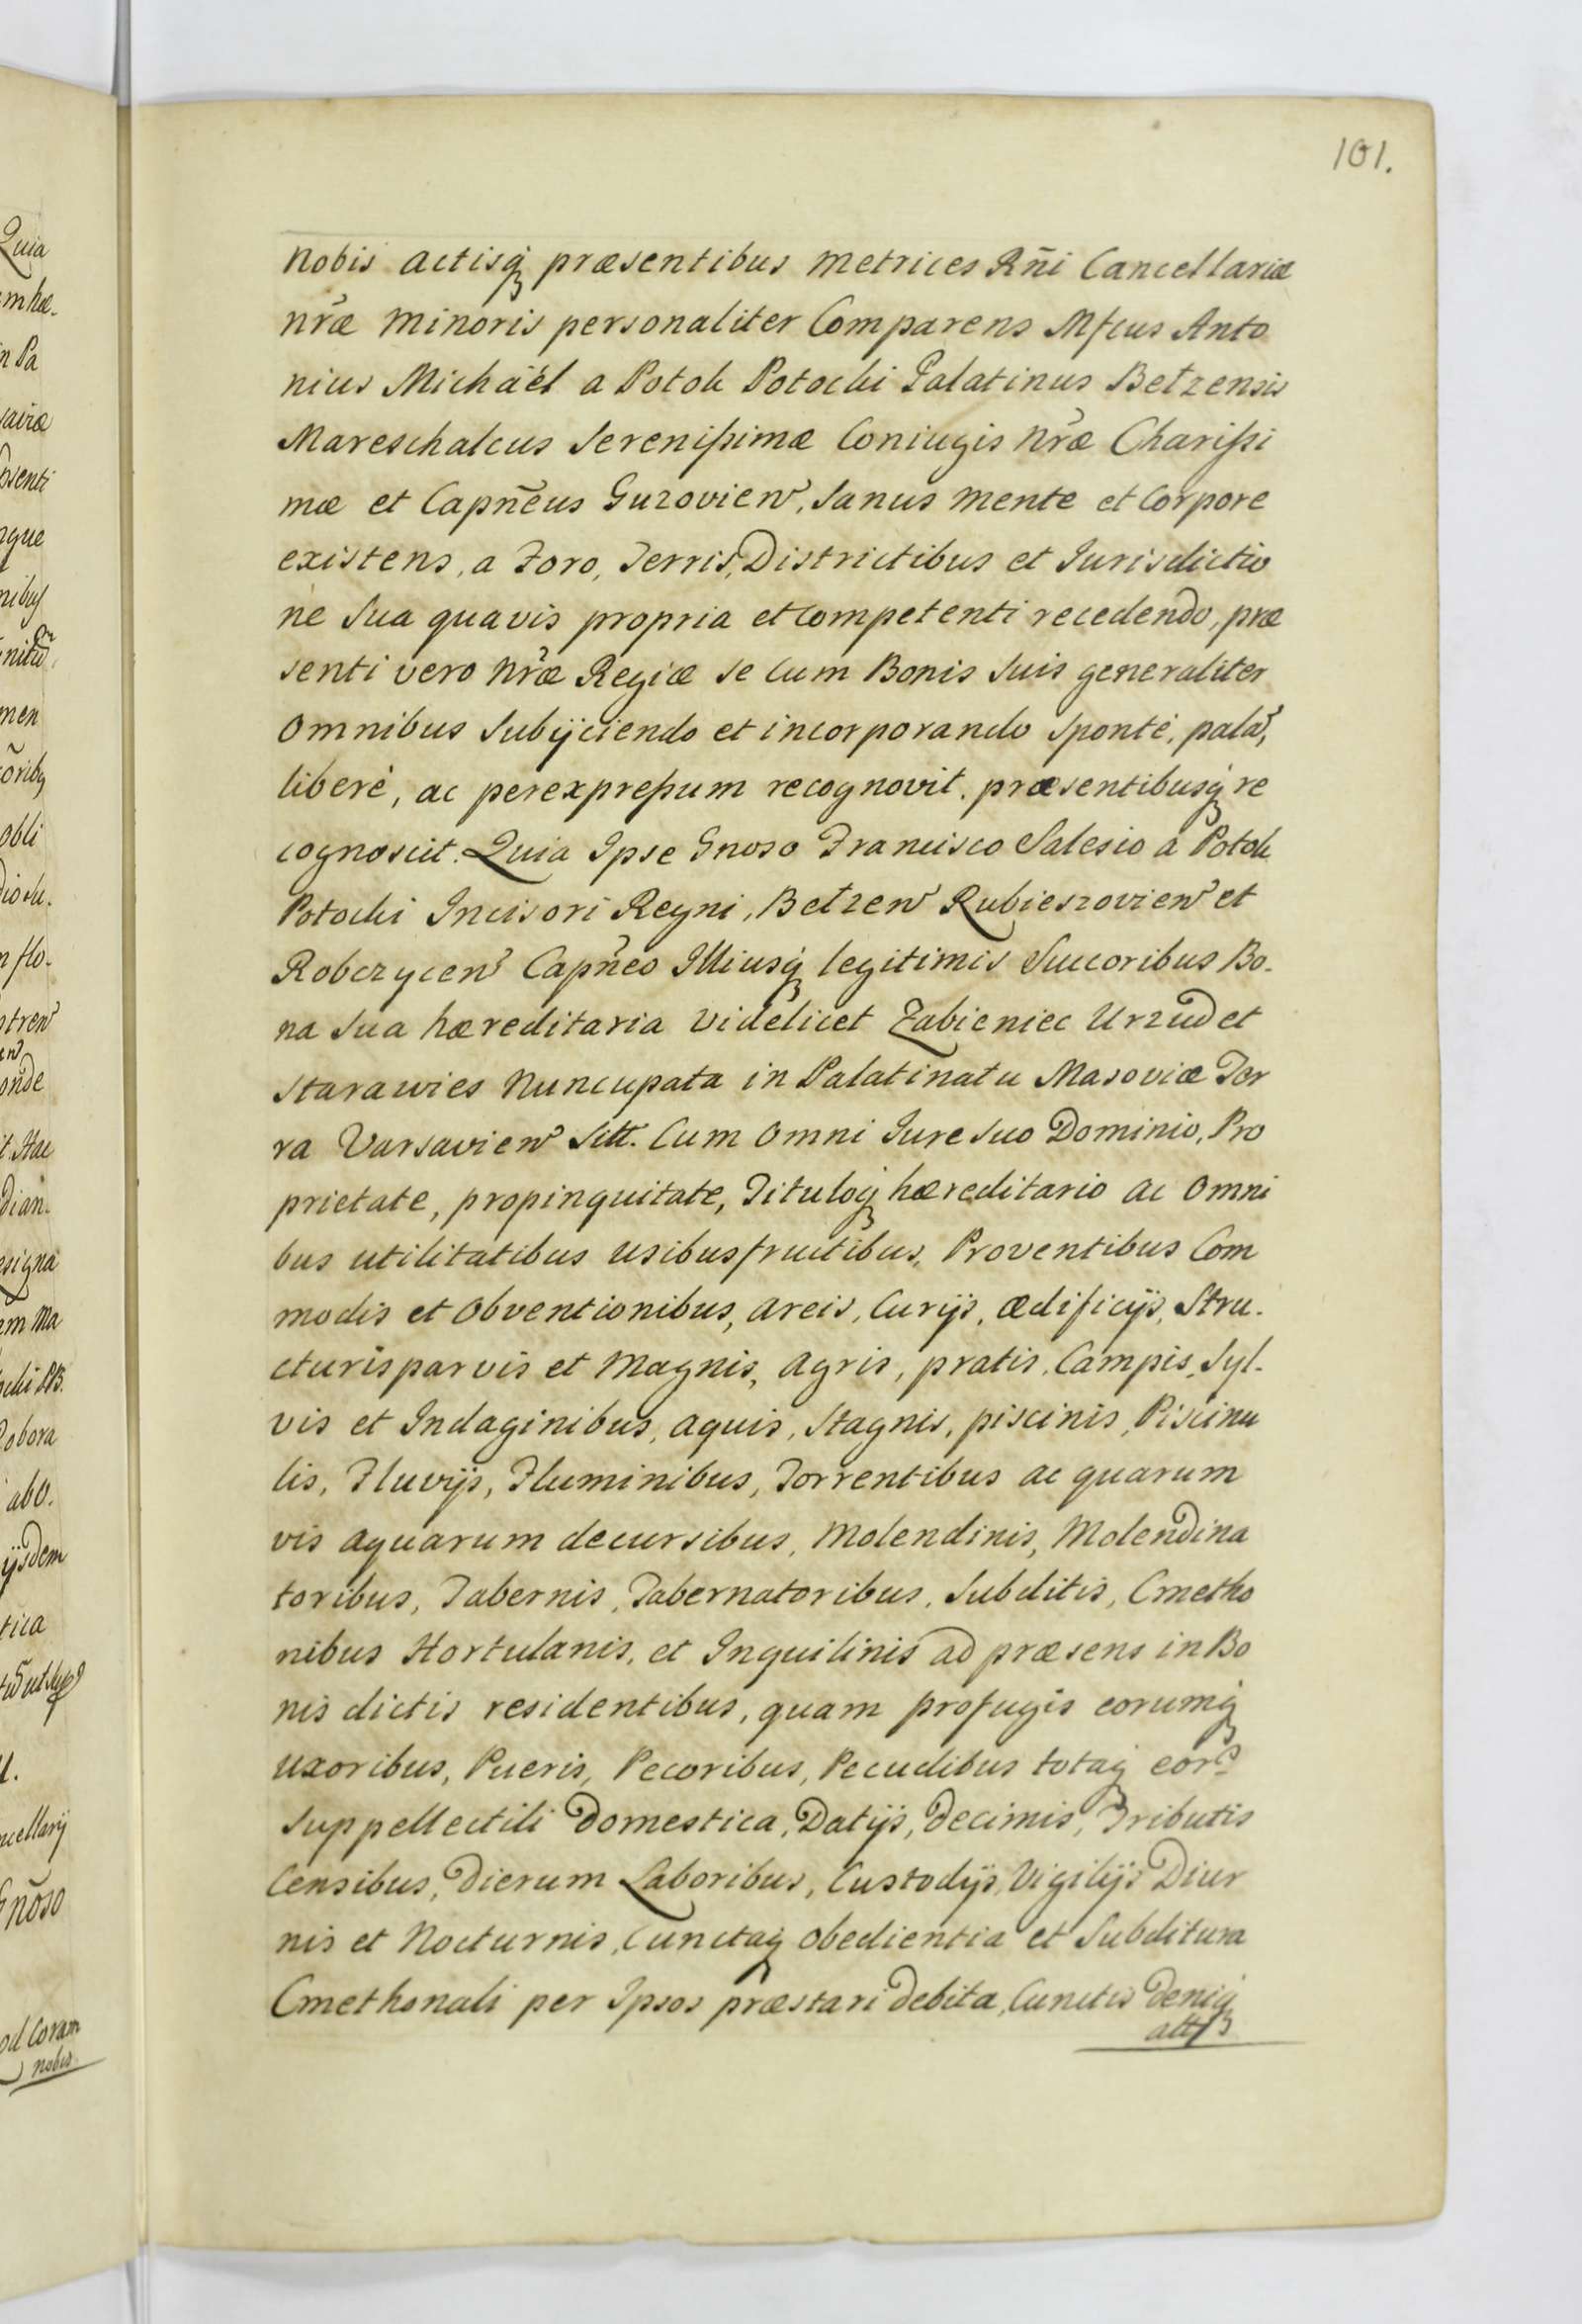 101.
nobis actisq́ præsentibus metrices Rñi Cancellariæ
nr̃æ minoris personaliter Comparens Mfcus Anto
nius Michäel a Potok Potocki Palatinus Bełzensis
Mareschalcus Serenißimæ Coniugis nr̃æ Charißi
mæ et Capñeus Guzovien, Sanus mente et Corpore
existens, a Foro, Terris, Districtibus et Jurisdictio
ne Sua quavis propria et Competenti recedendo, præ
senti vero nr̃æ Regiæ se Cum Bonis Suis generaliter
Omnibus Subijciendo et incorporando Sponté, pala᷈,
liberè, ac per expreßum recognovit, præsentibusq́ re
cognoscit. Quia Ipse Gnoso Francisco Salesio à Potok
Potocki Incisori Regni, Bełzen Rubieszovien et
Robczycen Capñeo Illiusq́ legitimis Succoribus Bo-
na Sua hæreditaria videlicet Zabieniec Urzud et
Starawies Nuncupata in Palatinatu Masoviæ Ter
ra Varsavien Sitt. Cum Omni Jure Suo Dominio, Pro
prietate, propinquitate, Tituloq́ hæreditario ac Omni
bus utilitatibus usibusfructibus, Proventibus Com
modis et Obventionibus, areis, Curijs, ædificijs, Stru-
cturis parvis et Magnis, agris, pratis, Campis, Syl-
vis et Indaginibus, aquis, Stagnis, piscinis, Piscinu
lis, Fluvijs, Fluminibus, Torrentibus ac quarum
vis aquarum decursibus, Molendinis, Molendina
toribus, Tabernis, Tabernatoribus, Subditis, Cmetho
nibus Hortulanis, et Inquilinis ad præsens in Bo
nis dictis residentibus, quam profugis eorumq́
uxoribus, Pueris, Pecoribus, Pecudibus totaq́ eor᷈
Suppellectili Domestica, Datijs, Decimis, Tributis
Censibus, Dierum Laboribus, Custodijs, Vigilijs Diur
nis et Nocturnis, Cunctaq́ obedientia et Subditura
Cmethonali per Ipsos præstari Debita, Cunctis Deniq́